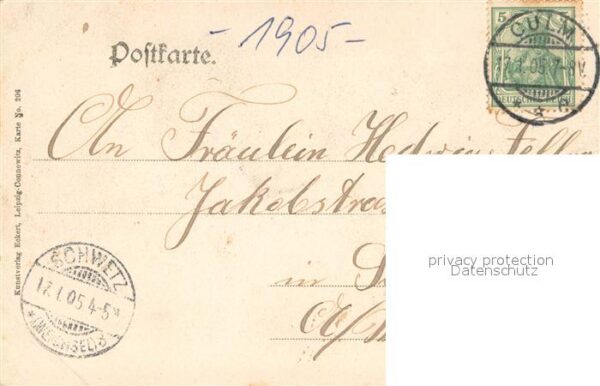 - 1905 -
Postkarte.
CULM
17.1.05.7-8V.
DEUTSCHES REICH
5
An Fräulein Hedwig
Jakobstras
in
SCHWETZ
17.1.05 4-5N
*(WEICHSEL)*
Kunstverlag Eckert, Leipzig-Connewitz, Karte No. 204
privacy protection
Datenschutz